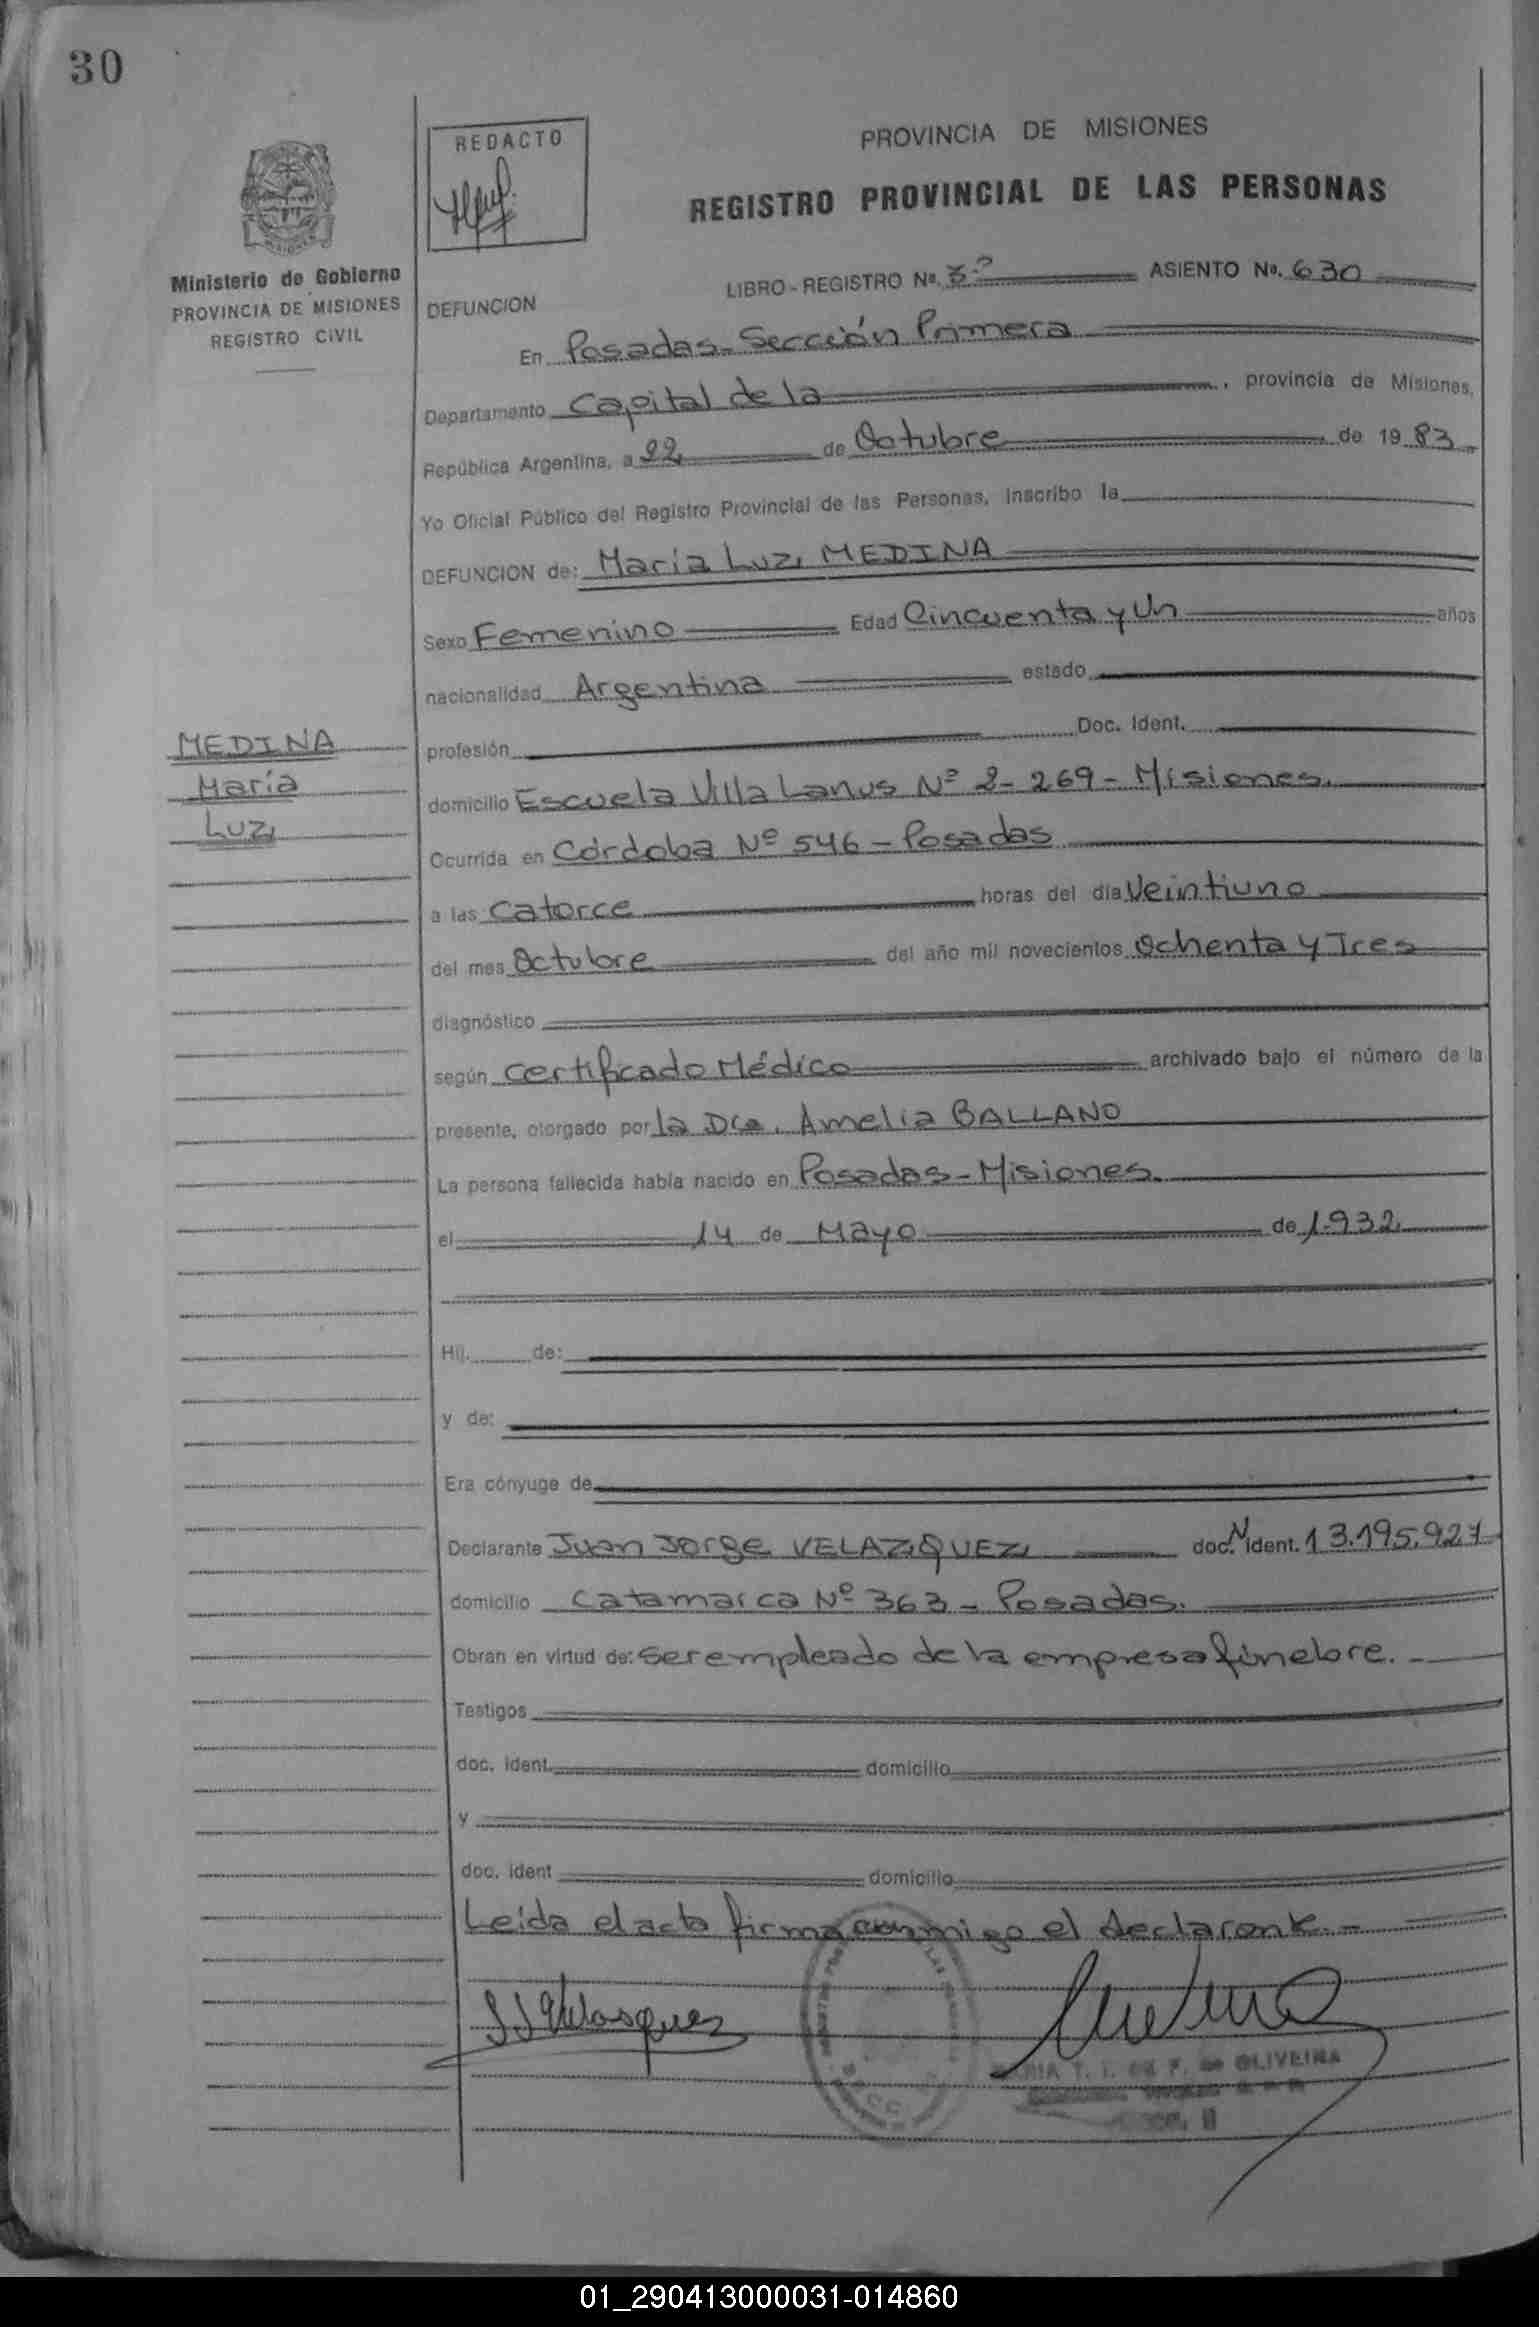 30
REDACTO
PROVINCIA DE MISIONES
REGISTRO PROVINCIAL DE LAS PERSONAS
Ministerio de Gobierno
PROVINCIA DE MISIONES
REGISTRO CIVIL
DEFUNCION
LIBRO-REGISTRO Nº. 3º ASIENTO Nº. 630
En Posadas-Sección Primera
Departamento Capital de la, provincia de Misiones,
República Argentina, a 22 de Octubre de 1983
Yo Oficial Público del Registro Provincial de las Personas, inscribo la
DEFUNCION de: María Luz MEDINA
Sexo Femenino Edad Cincuenta y Un años
nacionalidad Argentina estado
profesión Doc. Ident.
MEDINA
María
Luz
domicilio Escuela Villa Lanus Nº 2-269-Misiones.
Ocurrida en Córdoba Nº 546-Posadas
a las Catorce horas del día Veintiuno
del mes Octubre del año mil novecientos Ochenta y Tres
diagnóstico
según Certificado Médico archivado bajo el número de la
presente, otorgado por la Dra. Amelia BALLANO
La persona fallecida había nacido en Posadas-Misiones.
el 14 de Mayo de 1.932
Hij. de:
y de:
Era cónyuge de
Declarante Juan Jorge VELAZQUEZ doc. N ident. 13.195.927
domicilio Catamarca Nº 363-Posadas.
Obran en virtud de: ser empleado de la empresa fúnebre.-
Testigos
doc. ident. domicilio
y
doc. ident domicilio
Leída el acta firma conmigo el declarante.-
J J Velasquez
MARIA T. I. DE F. de OLIVEIRA